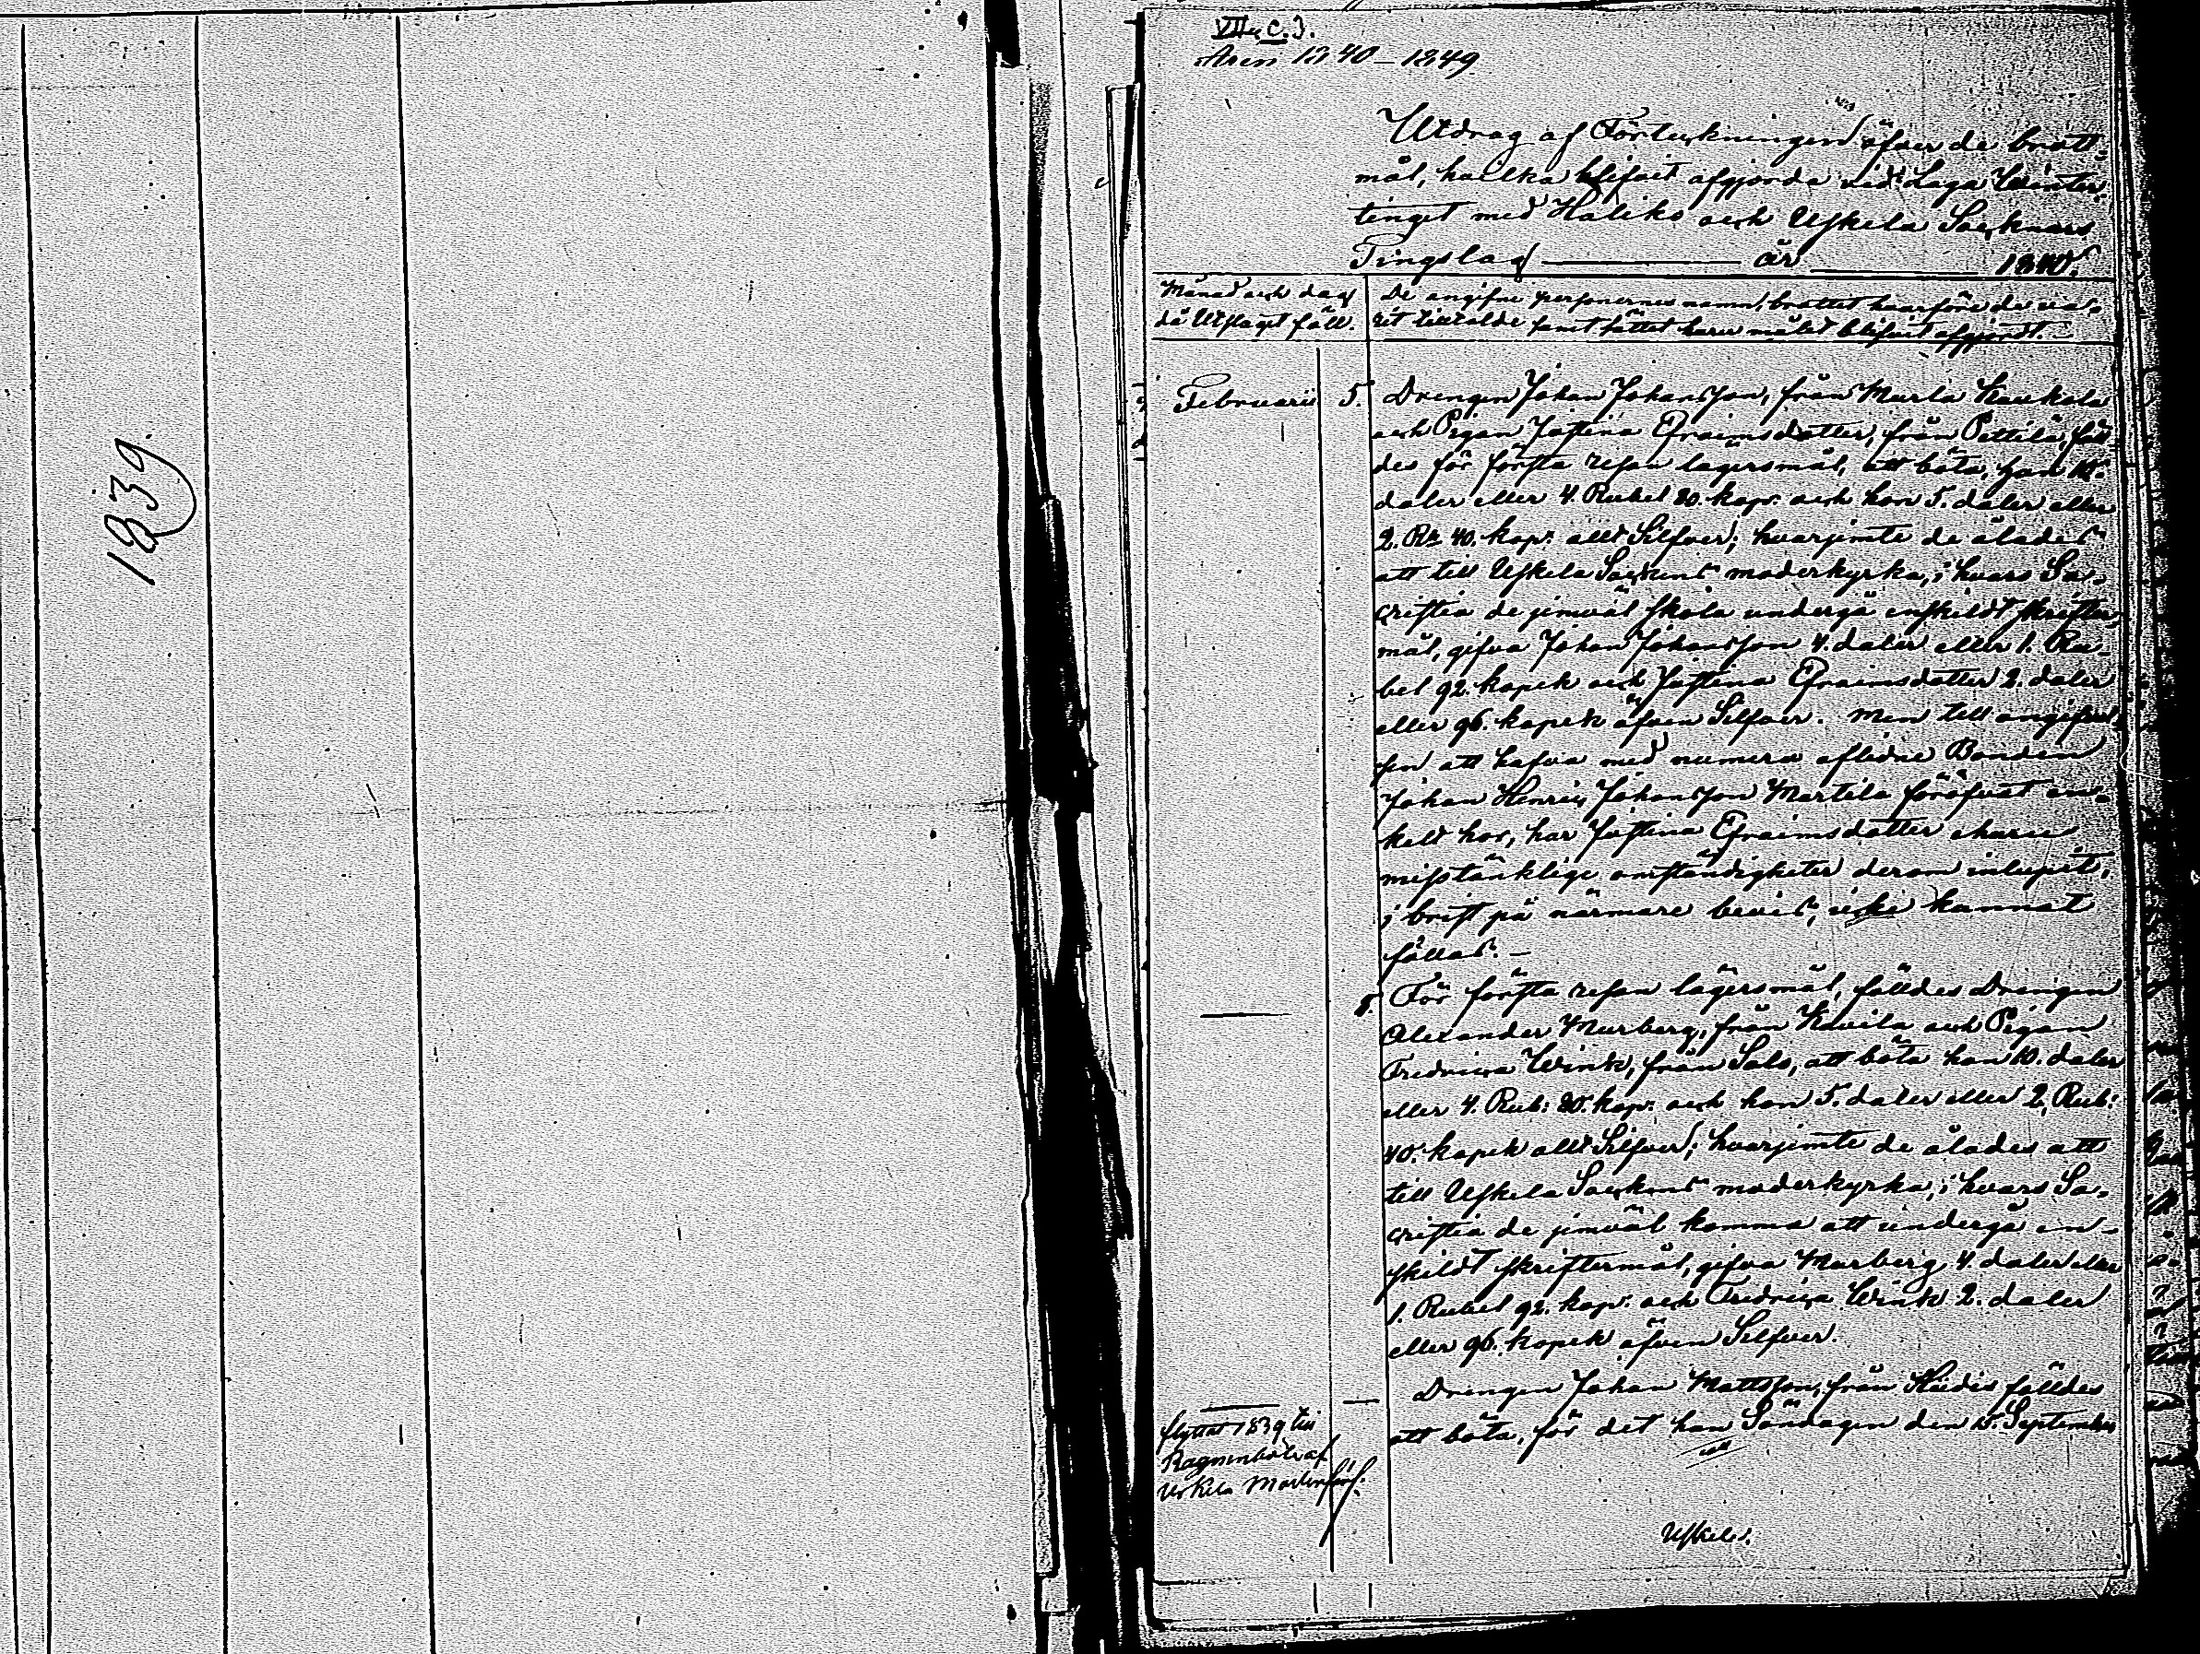 1839.
VII, C. J.
Åren 1840–1849
Utdrag af Förteckningen öfver de brott-
mål, hvilka blifvit afgjorda vid Laga Winter-
tinget med Haliko och Uskela Socknars
Tingslag — år — 1840.
Månad och dag De angifne personernes namn, brottet hvarföre de va-
då Utslaget föll. rit tilltalde samt sättet huru målet blifvit afgjordt.
Februarii 5. Drengen Johan Johansson, från Murla Kaukola
och Pigan Justina Efraimsdotter, från Pettilä, fäll-
des för första resan lägersmål, att böta, han 10.
daler eller 4. Rubel 80. kop. och hon 5. daler eller
2. Rr 40. kop: allt Silfver; hvarjemte de ålades
att till Uskela Sockens moderkyrka, i hvars Sa-
cristia de jemväl skola undergå enskildt skrifter-
mål, gifva Johan Johansson 4. daler eller 1. Ru-
bel 92. kopek och Justina Efraimsdotter 2. daler
eller 96. kopek äfven Silfver. Men till angifvel-
sen att hafva med numera aflidne Bonden
Johan Henric Johansson Martila föröfvat en-
kelt hor, har Justina Efraimsdotter ehuru
misstänklige omständigheter derom inlupit,
i brist på närmare bevis, icke kunnat
fällas. —
— 8. För första resan lägersmål, fälldes Drengen
Alexander Murberg, från Kavila och Pigan
Fredrica Wink, från Salo, att böta han 10. daler
eller 4. Rub: 80. kop: och hon 5. daler eller 2. Rub:
40. kopek allt Silfver; hvarjemte de ålades att
till Uskela Sockens moderkyrka, i hvars Sa-
cristia de jemväl komma att undergå en-
skildt skriftermål, gifva Murberg 4. daler eller
1. Rubel 92. kop: och Fredrica Wink 2. daler
eller 96. kopek äfven Silfver.
— — Drengen Johan Mattsson, från Kädis fälldes
att böta, för det han Söndagen den 15. September
flyttat 1839 till
af
Uskela
Uskela.